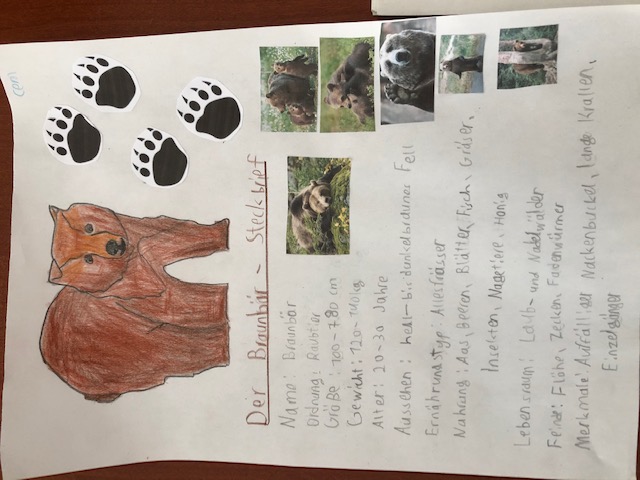 Cem
Der Braunbär - Steckbrief
Name: Braunbär
Ordnung: Raubtier
Größe: 100-280 cm
Gewicht: 120-340kg
Alter: 20-30 Jahre
Aussehen: hell- bis dunkelbraunes Fell
Ernährungstyp: Allesfrässer
Nahrung: Aas, Beeren, Blätter, Fisch, Gräser,
Insekten, Nagetiere, Honig
Lebensraum: Laub- und Nadelwälder
Feinde: Flöhe, Zecken, Fadenwürmer
Merkmale: Auffälliger Nackenbuckel, lange Krallen,
Einzelgänger